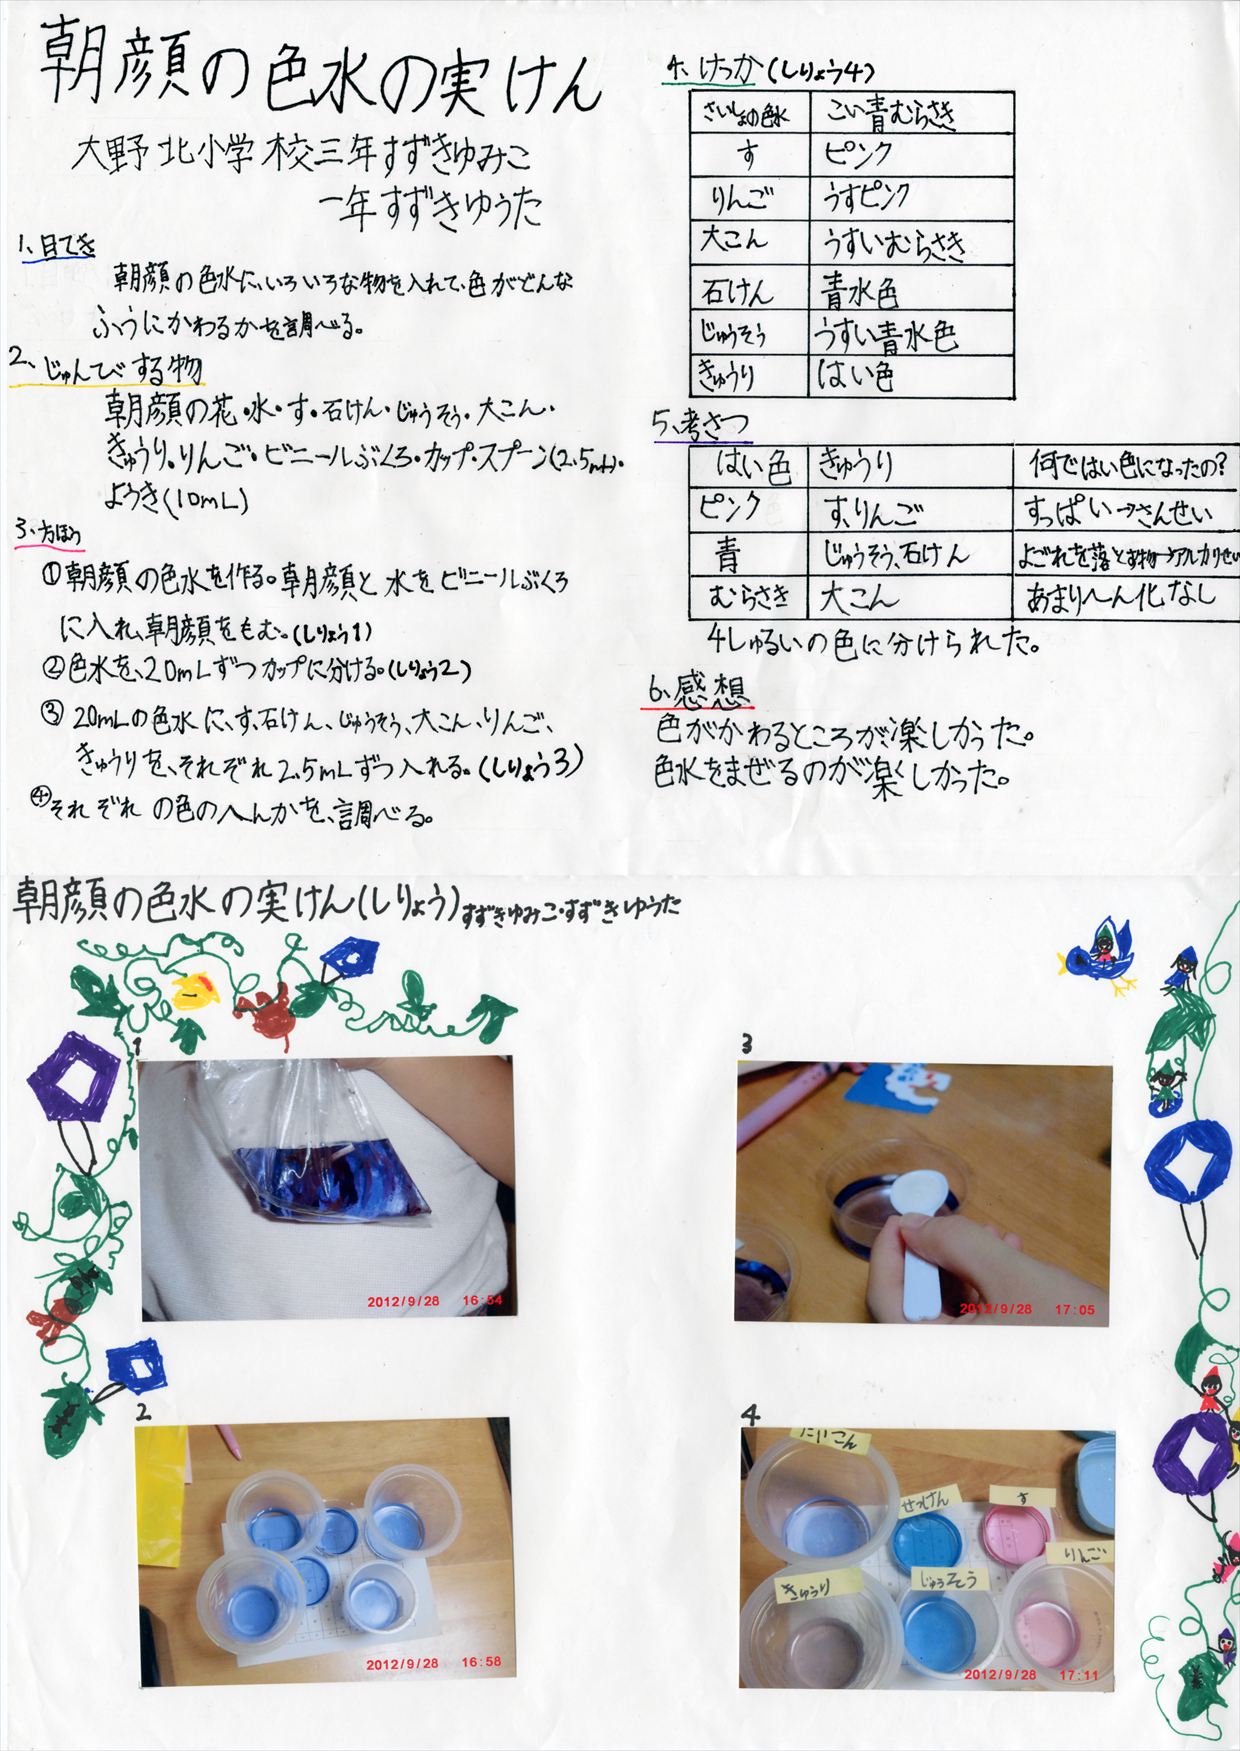 朝顔の色水の実けん
大野北小学校三年すずきゆみこ
一年すずきゆうた
1、目てき
朝顔の色水に、いろいろな物を入れて、色がどんな
ふうにかわるかを調べる。
2、じゅんびする物
朝顔の花・水・す・石けん・じゅうそう・大こん・
きゅうり・りんご・ビニールぶくろ・カップ・スプーン(2.5mL)・
ようき(10mL)
3、方ほう
①朝顔の色水を作る。朝顔と水をビニールぶくろ
に入れ、朝顔をもむ。(しりょう1)
②色水を、20mLずつカップに分ける。(しりょう2)
③20mLの色水に、す、石けん、じゅうそう、大こん、りんご、
きゅうりを、それぞれ2.5mLずつ入れる。(しりょう3)
④それぞれの色のへんかを、調べる。
4、けっか(しりょう4)
さいしょの色水 こい青むらさき
す ピンク
りんご うすピンク
大こん うすいむらさき
石けん 青水色
じゅうそう うすい青水色
きゅうり はい色
5、考さつ
はい色 きゅうり 何ではい色になったの?
ピンク す、りんご すっぱい→さんせい
青 じゅうそう、石けん よごれを落とす物→アルカリせい
むらさき 大こん あまりへん化なし
4しゅるいの色に分けられた。
6、感想
色がかわるところが、楽しかった。
色水をまぜるのが楽しかった。
朝顔の色水の実けん(しりょう)すずきゆみこ・すずきゆうた
1
2012/9/28 16:54
2
2012/9/28 16:58
3
2012/9/28 17:05
4
だいこん
せっけん
す
りんご
きゅうり
じゅうそう
2012/9/28 17:11